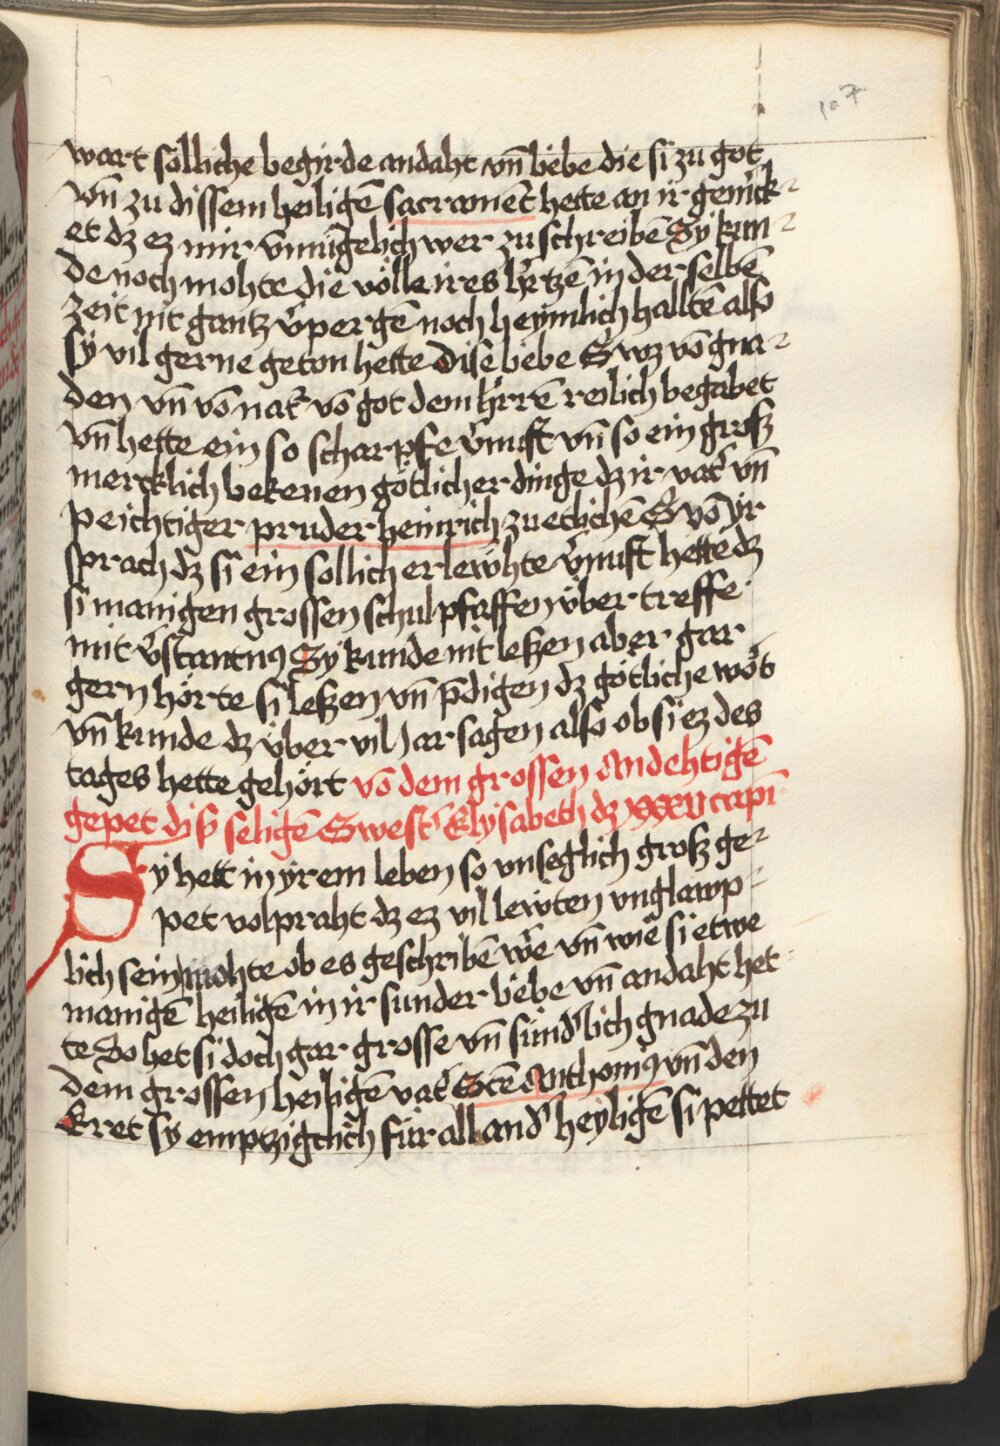 107
wart sölliche begirde andaht vn̄ liebe die si zu got
vn̄ zu dissem heiligē sacramēt hette an ir gemck
et dz ez mir v̄mugelich wer zu schreibē Sy kun
de noch mohte die völle ires h̓tzē in der selbē
zeit nit gantz v̓pergē noch heymlich halltē also
sy vil gerne geton hette dise liebe S wz vō gna
den vn̄ vō nat̓ vō got dem h̓rrē reilich begabet
vn̄ hette ein so scharpfe v̓nuft vn̄ so ein groß
mercklich bekenen götlicher dinge dz ir vat̓ vn̄
peichtiger pruder heinrich zu etlichē S vō yr
sprach dz si ein sollich erlewhte v̓nuft hette dz
si manigen grossen schulpfaffen über treffe
mit v̓stantnꝰ Sy kunde nit leßen aber gar
gern hörte si leßen vn̄ p̄digen dz götliche wōt
vn̄ kunde dz über vil jar sagen also ob si ez des
tages hette gehört vō dem grossen Andehtigē
gepet diß seligē Swest̓ Elysabeth dz xxxvii capi
Sy hett in yrem leben so vnseglich groß ge
pet volpraht dz ez vil lewten vnglawp
lich sein mohte ob es geschribē we̓ vn̄ wie si etwe
manigē heiligē in ir sunder liebe vn̄ andaht het
te So het si doch gar grosse vn̄ sund̓lich gnade zu
dem grossen heiligē vat̓ Sctē Anthoniꝰ vn̄ den
Eret sy emptzigclich für all and̓ heyligē si pettet